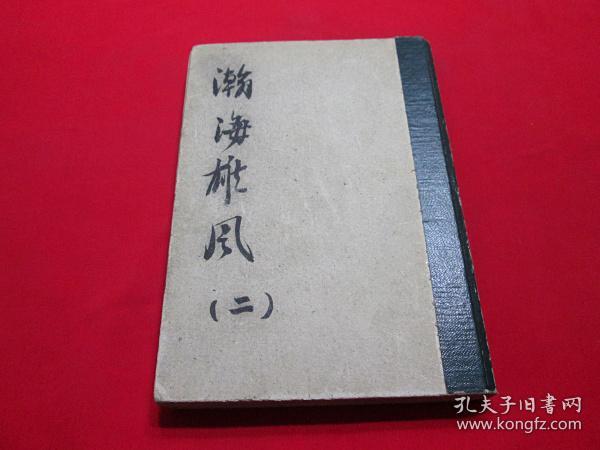 瀚海雄风
（二）
孔夫子旧書网
www.kongfz.com